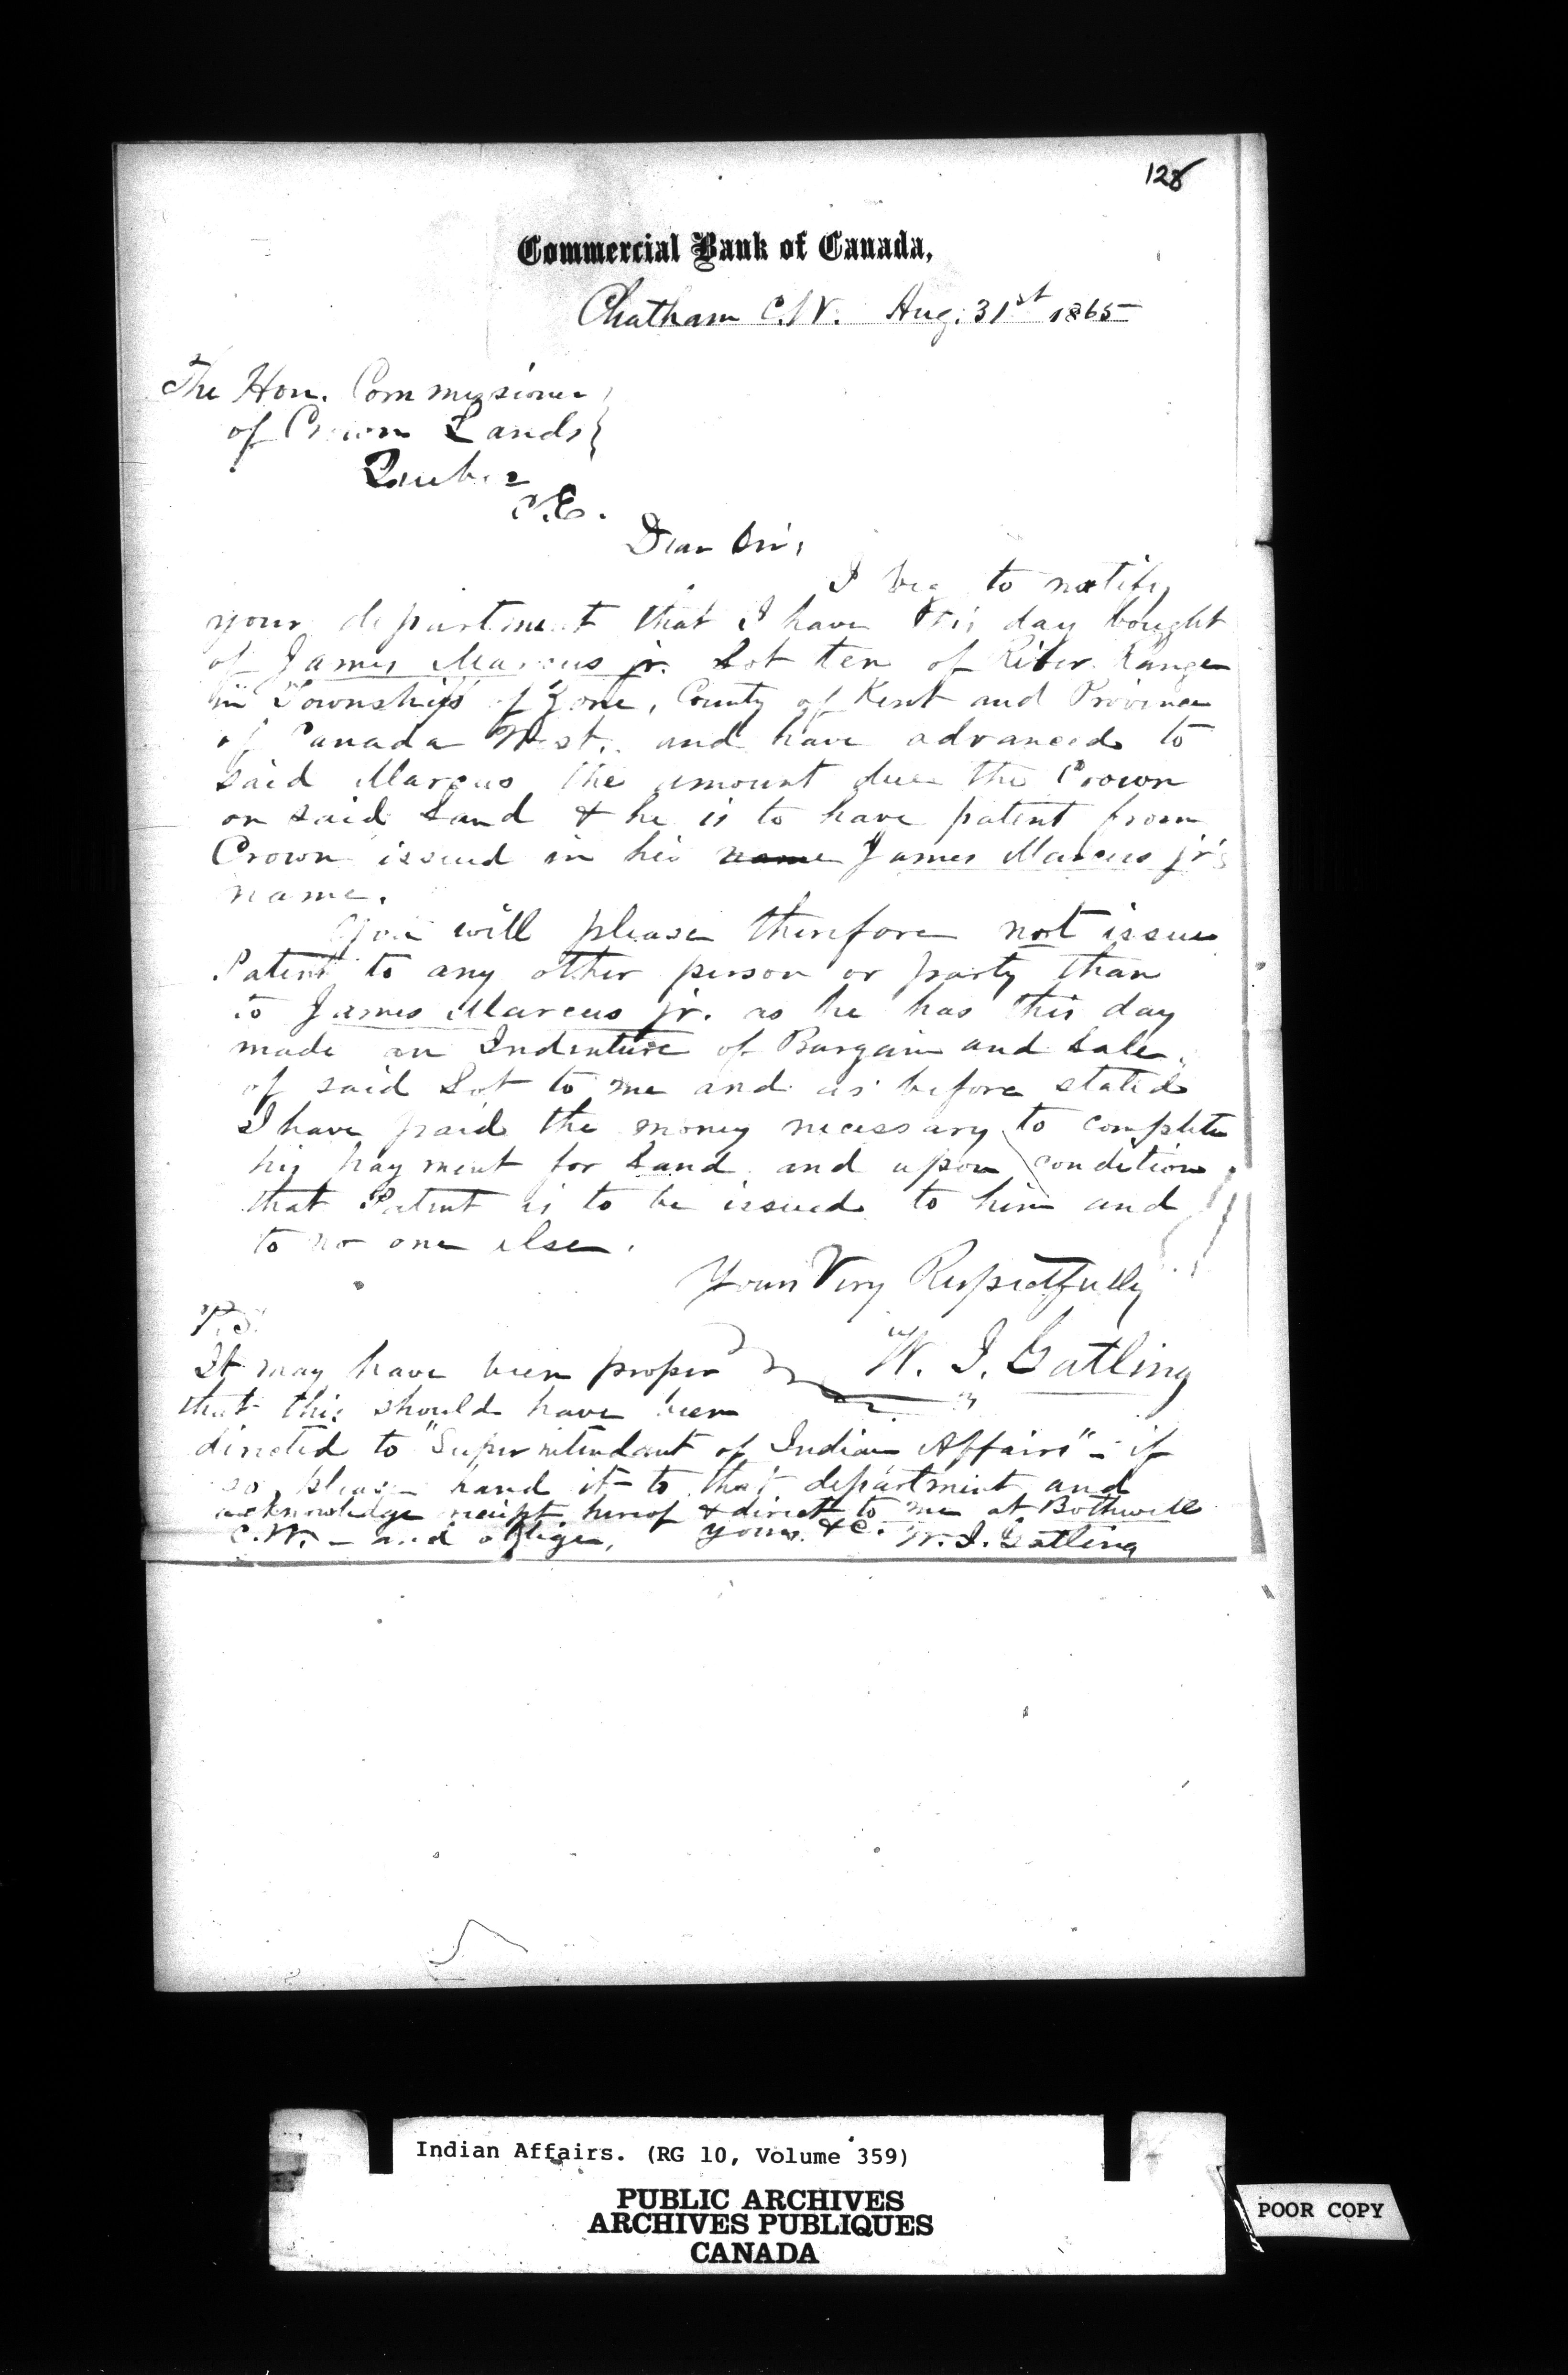 128
Commercial Bank of Canada,
Chatham C.W. Aug. 31st 1865
The Hon. Commissioner
of Crown Lands
Quebec
C.E.
Dear Sir,
I beg to notify
your department that I have this day bought
of James Marcus jr. Lot ten of River Range
in Township of Zone, County of Kent and Province
of Canada West, and have advanced to
said Marcus the amount due the Crown
on said Land & he is to have patent from
Crown issued in his name James Marcus jr's
name.
You will please therefore not issue
Patent to any other person or party than
to James Marcus jr. as he has this day
made an Indenture of Bargain and Sale
of said Lot to me and as before stated
I have paid the money necessary to complete
his payment for Land and upon condition
that Patent is to be issued to him and
to no one else.
Yours Very Respectfully
W. I. Gatling
P.S.
It may have been proper
that this should have been
directed to "Superintendant of Indian Affairs" - if
so please hand it to that department and
acknowledge receipt hereof & direct to me at Bothwell
C.W. - and oblige, Yours &c. W. I. Gatling
Indian Affairs. (RG 10, Volume 359)
PUBLIC ARCHIVES
ARCHIVES PUBLIQUES
CANADA
POOR COPY